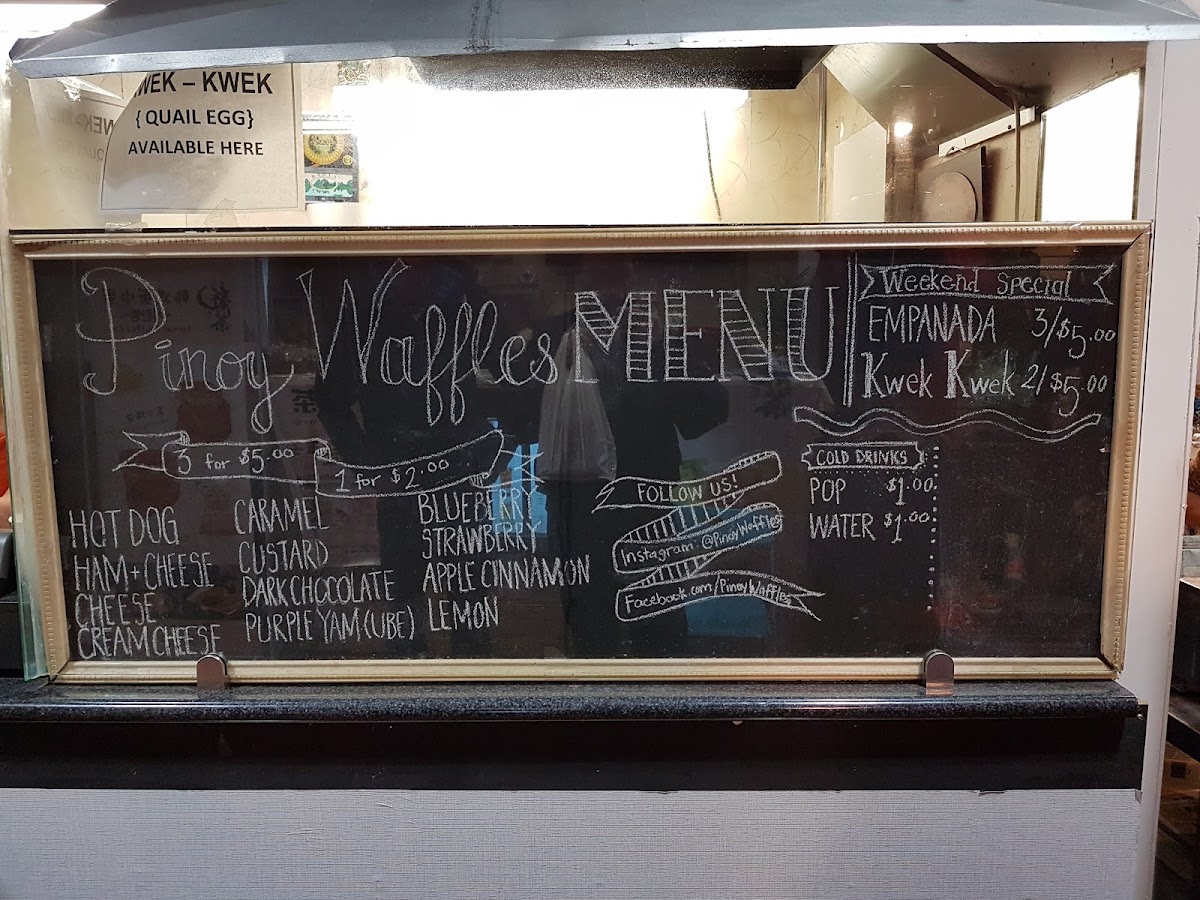 WEK – KWEK
{ QUAIL EGG}
AVAILABLE HERE
Pinoy Waffles MENU
3 for $5.00
1 for $2.00
HOT DOG
HAM + CHEESE
CHEESE
CREAM CHEESE
CARAMEL
CUSTARD
DARK CHOCOLATE
PURPLE YAM (UBE)
BLUEBERRY
STRAWBERRY
APPLE CINNAMON
LEMON
FOLLOW US!
Instagram · @PinoyWaffles
Facebook.com/PinoyWaffles
Weekend Special
EMPANADA 3/$5.00
Kwek Kwek 2/$5.00
COLD DRINKS
POP $1.00
WATER $1.00